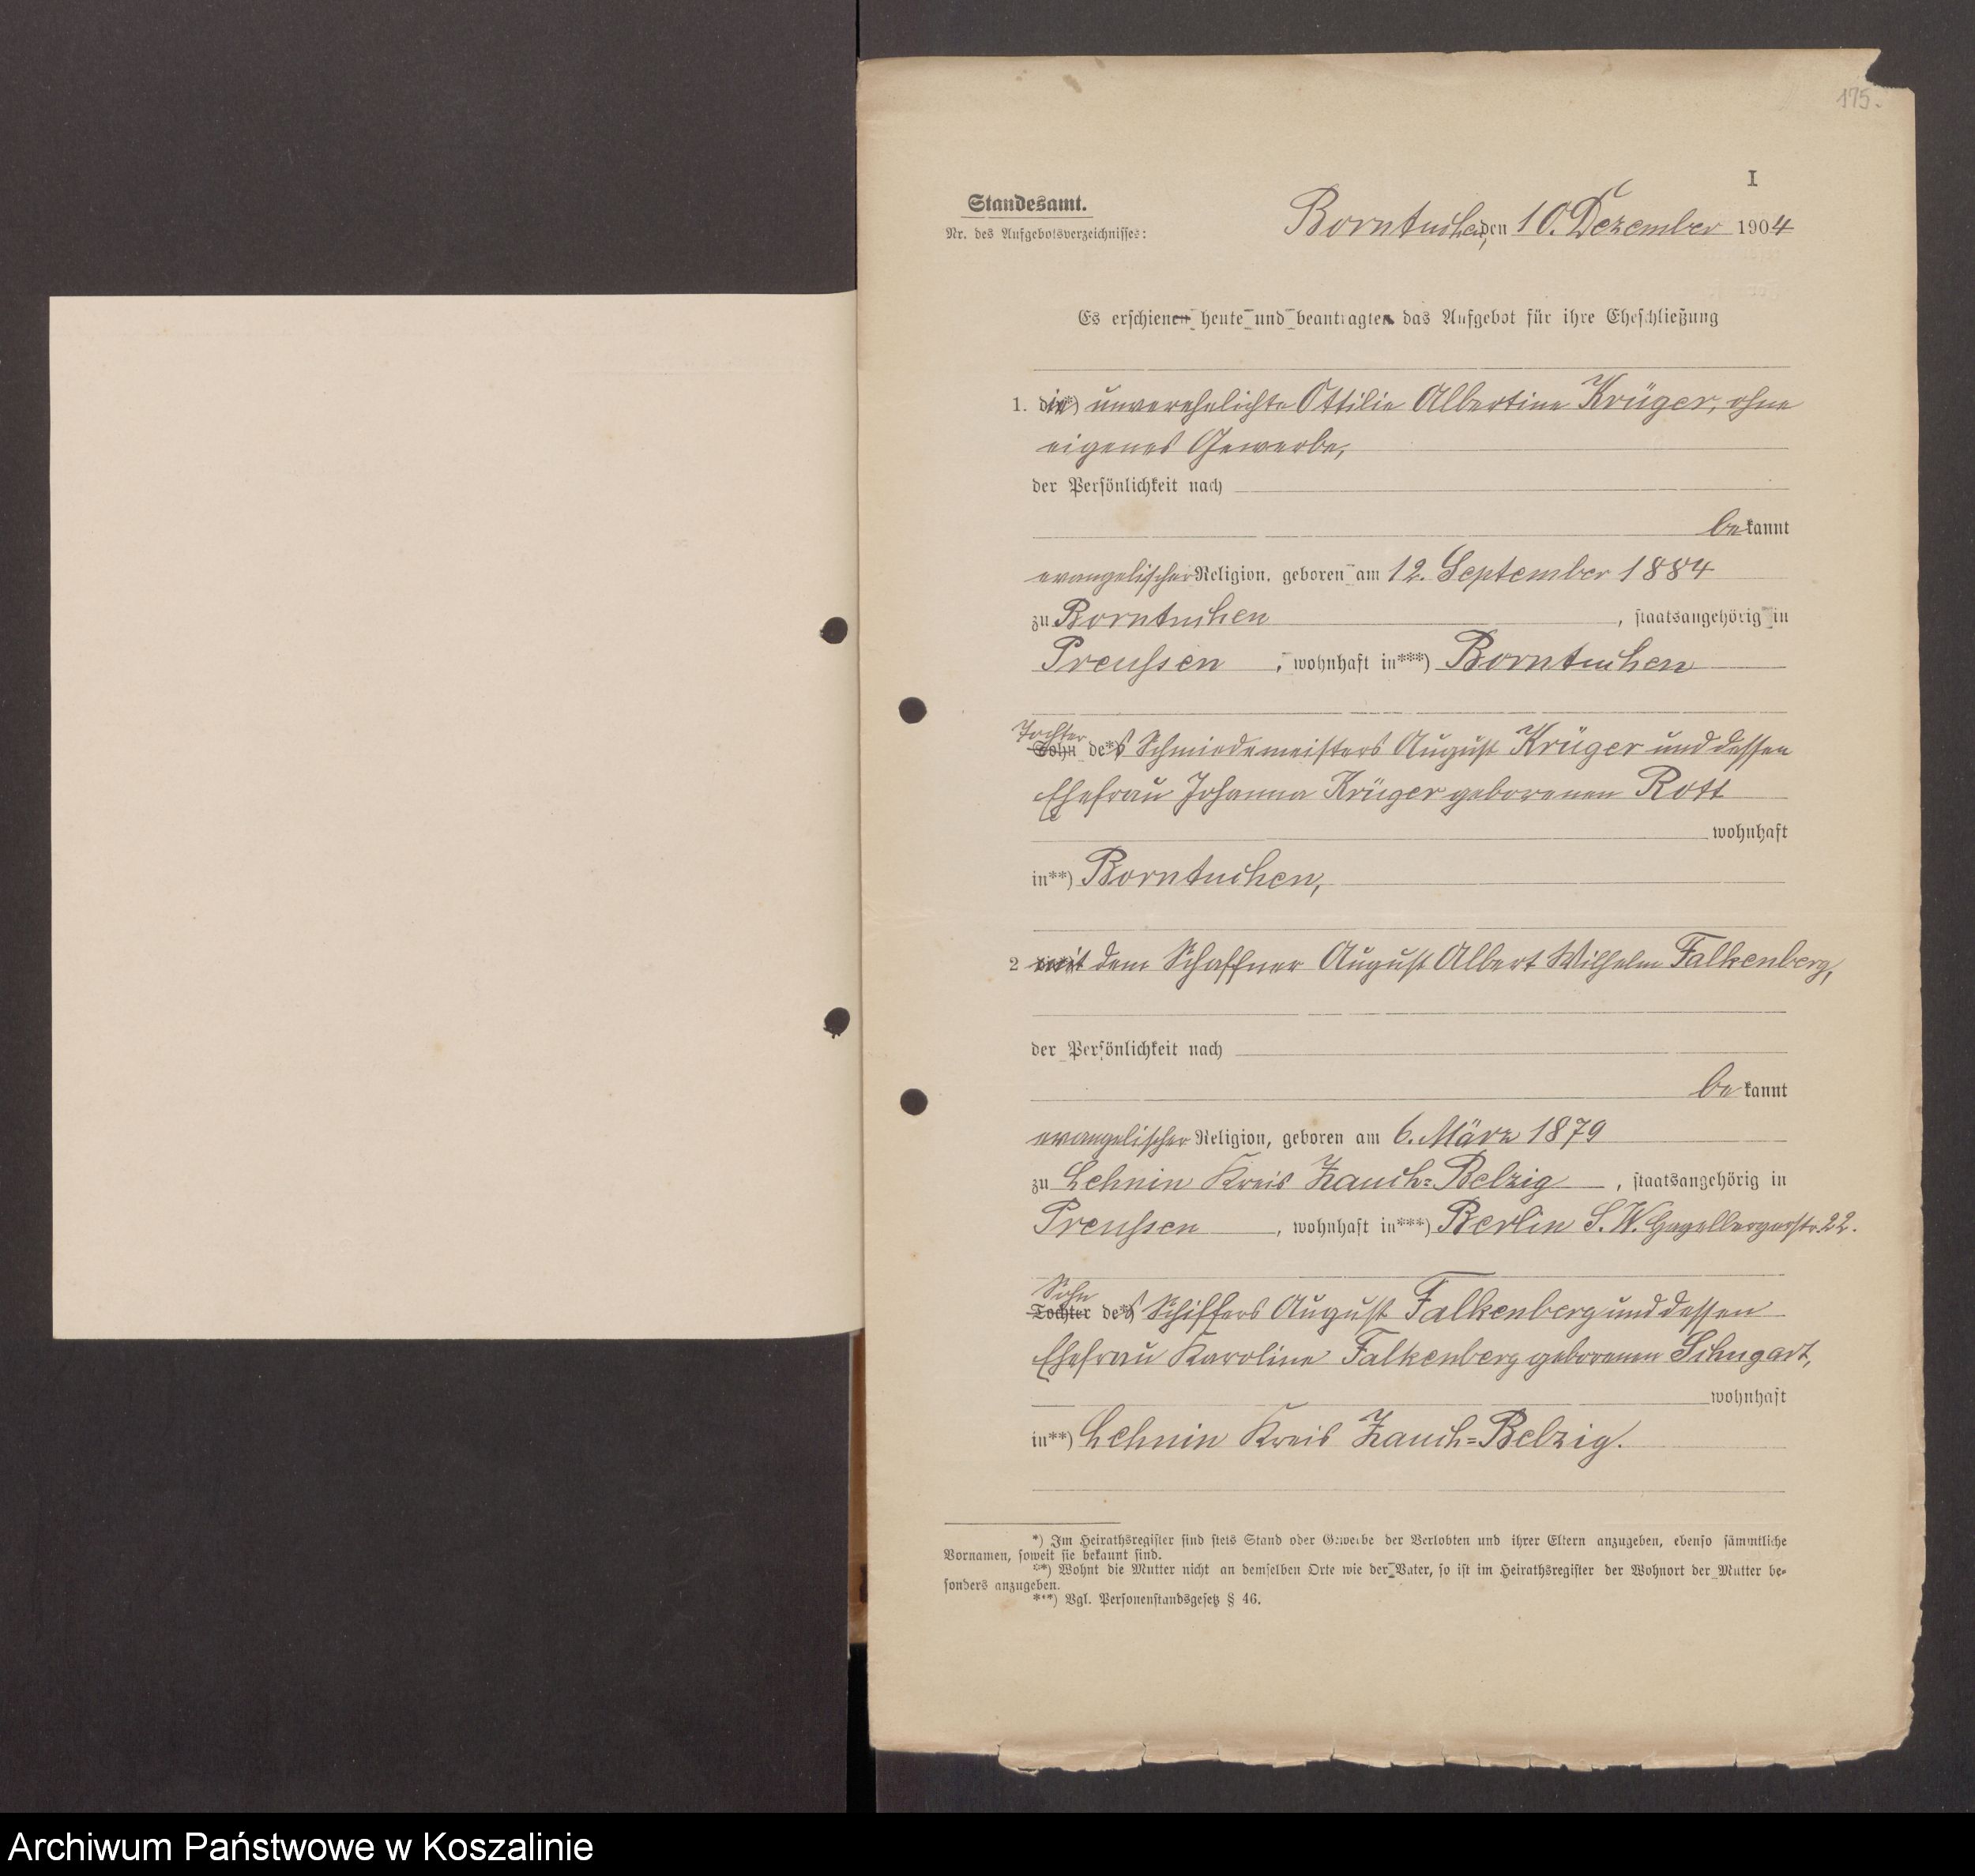 175.
I
Standesamt.
Nr. des Aufgebotsverzeichnisses:
Borntuchen, den 10. Dezember 1904
Es erschienen heute und beantragten das Aufgebot für ihre Eheschließung
1. die unverehelichte Ottilie Albertine Krüger, ohne
eigenes Gewerbe,
der Persönlichkeit nach
bekannt
evangelischer Religion, geboren am 12. September 1884
zu Borntuchen, staatsangehörig in
Preußen, wohnhaft in***) Borntuchen
Tochter
Sohn des*) Schmiedemeisters August Krüger und dessen
Ehefrau Johanna Krüger geborenen Rott
wohnhaft
in**) Borntuchen,
2 mit dem Schaffner August Albert Wilhelm Falkenberg,
der Persönlichkeit nach
bekannt
evangelischer Religion, geboren am 6. März 1879
zu Lehnin Kreis Zauch=Belzig, staatsangehörig in
Preußen, wohnhaft in***) Berlin S.W. Hagelbergerstr. 22.
Sohn
Tochter des*) Schiffers August Falkenberg und dessen
Ehefrau Karoline Falkenberg geborenen
wohnhaft
in**) Lehnin Kreis Zauch=Belzig.
*) Im Heirathsregister sind stets Stand oder Gewerbe der Verlobten und ihrer Eltern anzugeben, ebenso sämmtliche
Vornamen, soweit sie bekannt sind.
**) Wohnt die Mutter nicht an demselben Orte wie der Vater, so ist im Heirathsregister der Wohnort der Mutter be-
sonders anzugeben.
***) Vgl. Personenstandsgesetz § 46.
Archiwum Państwowe w Koszalinie